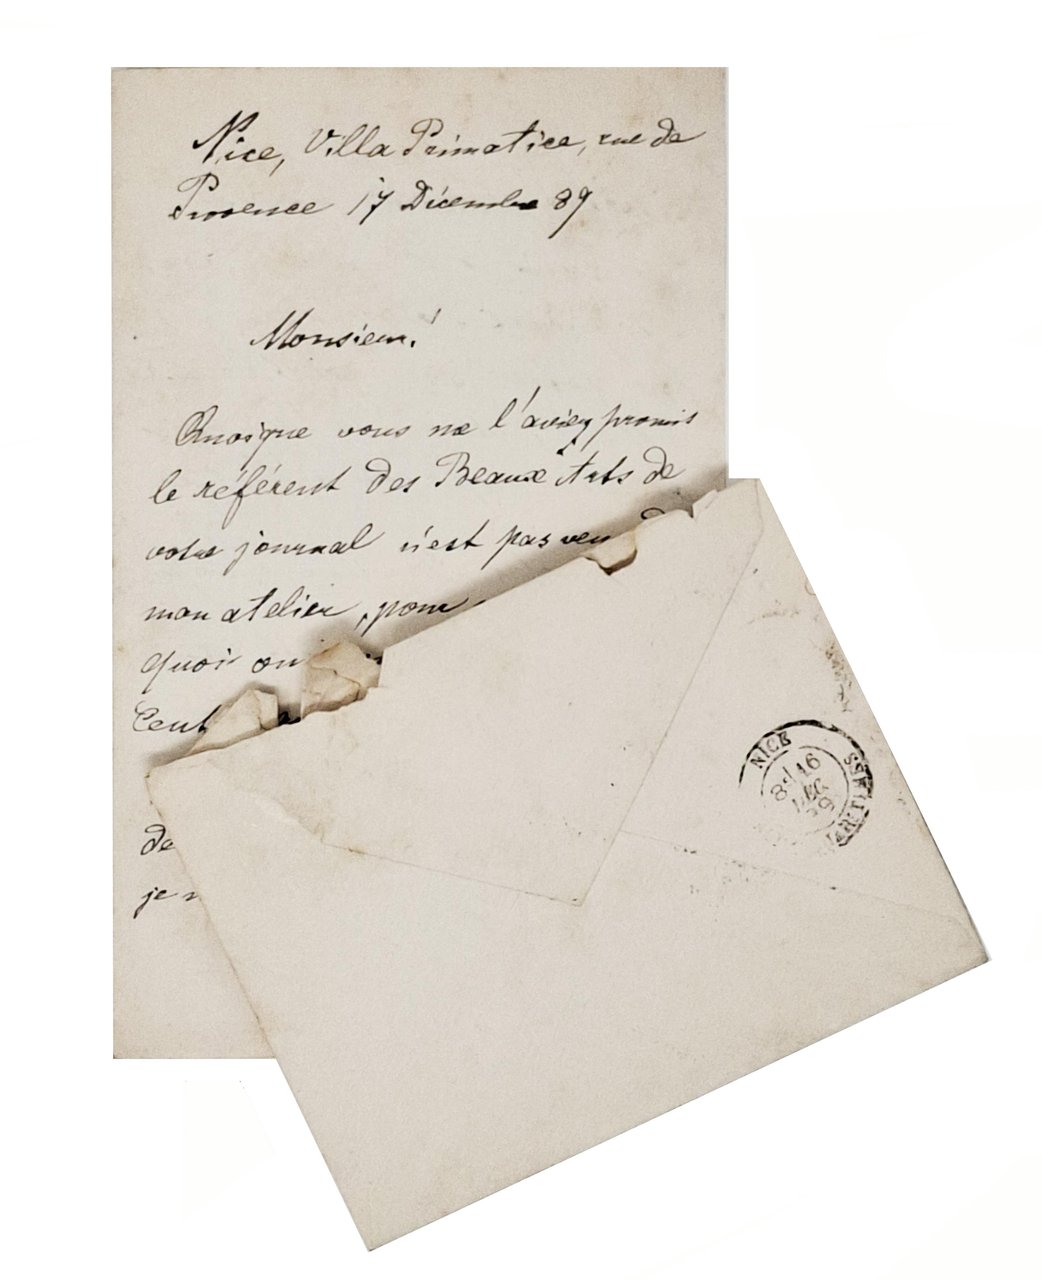 Nice, Villa Primatice, rue de
Provence 17 Décembre 89
Monsieur!
Quoique vous me l'aviez promis
le référent des Beaux Arts de
votre journal n'est pas
mon atelier, pour
quoi on
Cent
de
je
NICE
8E 16
DEC
89
MARITIMES